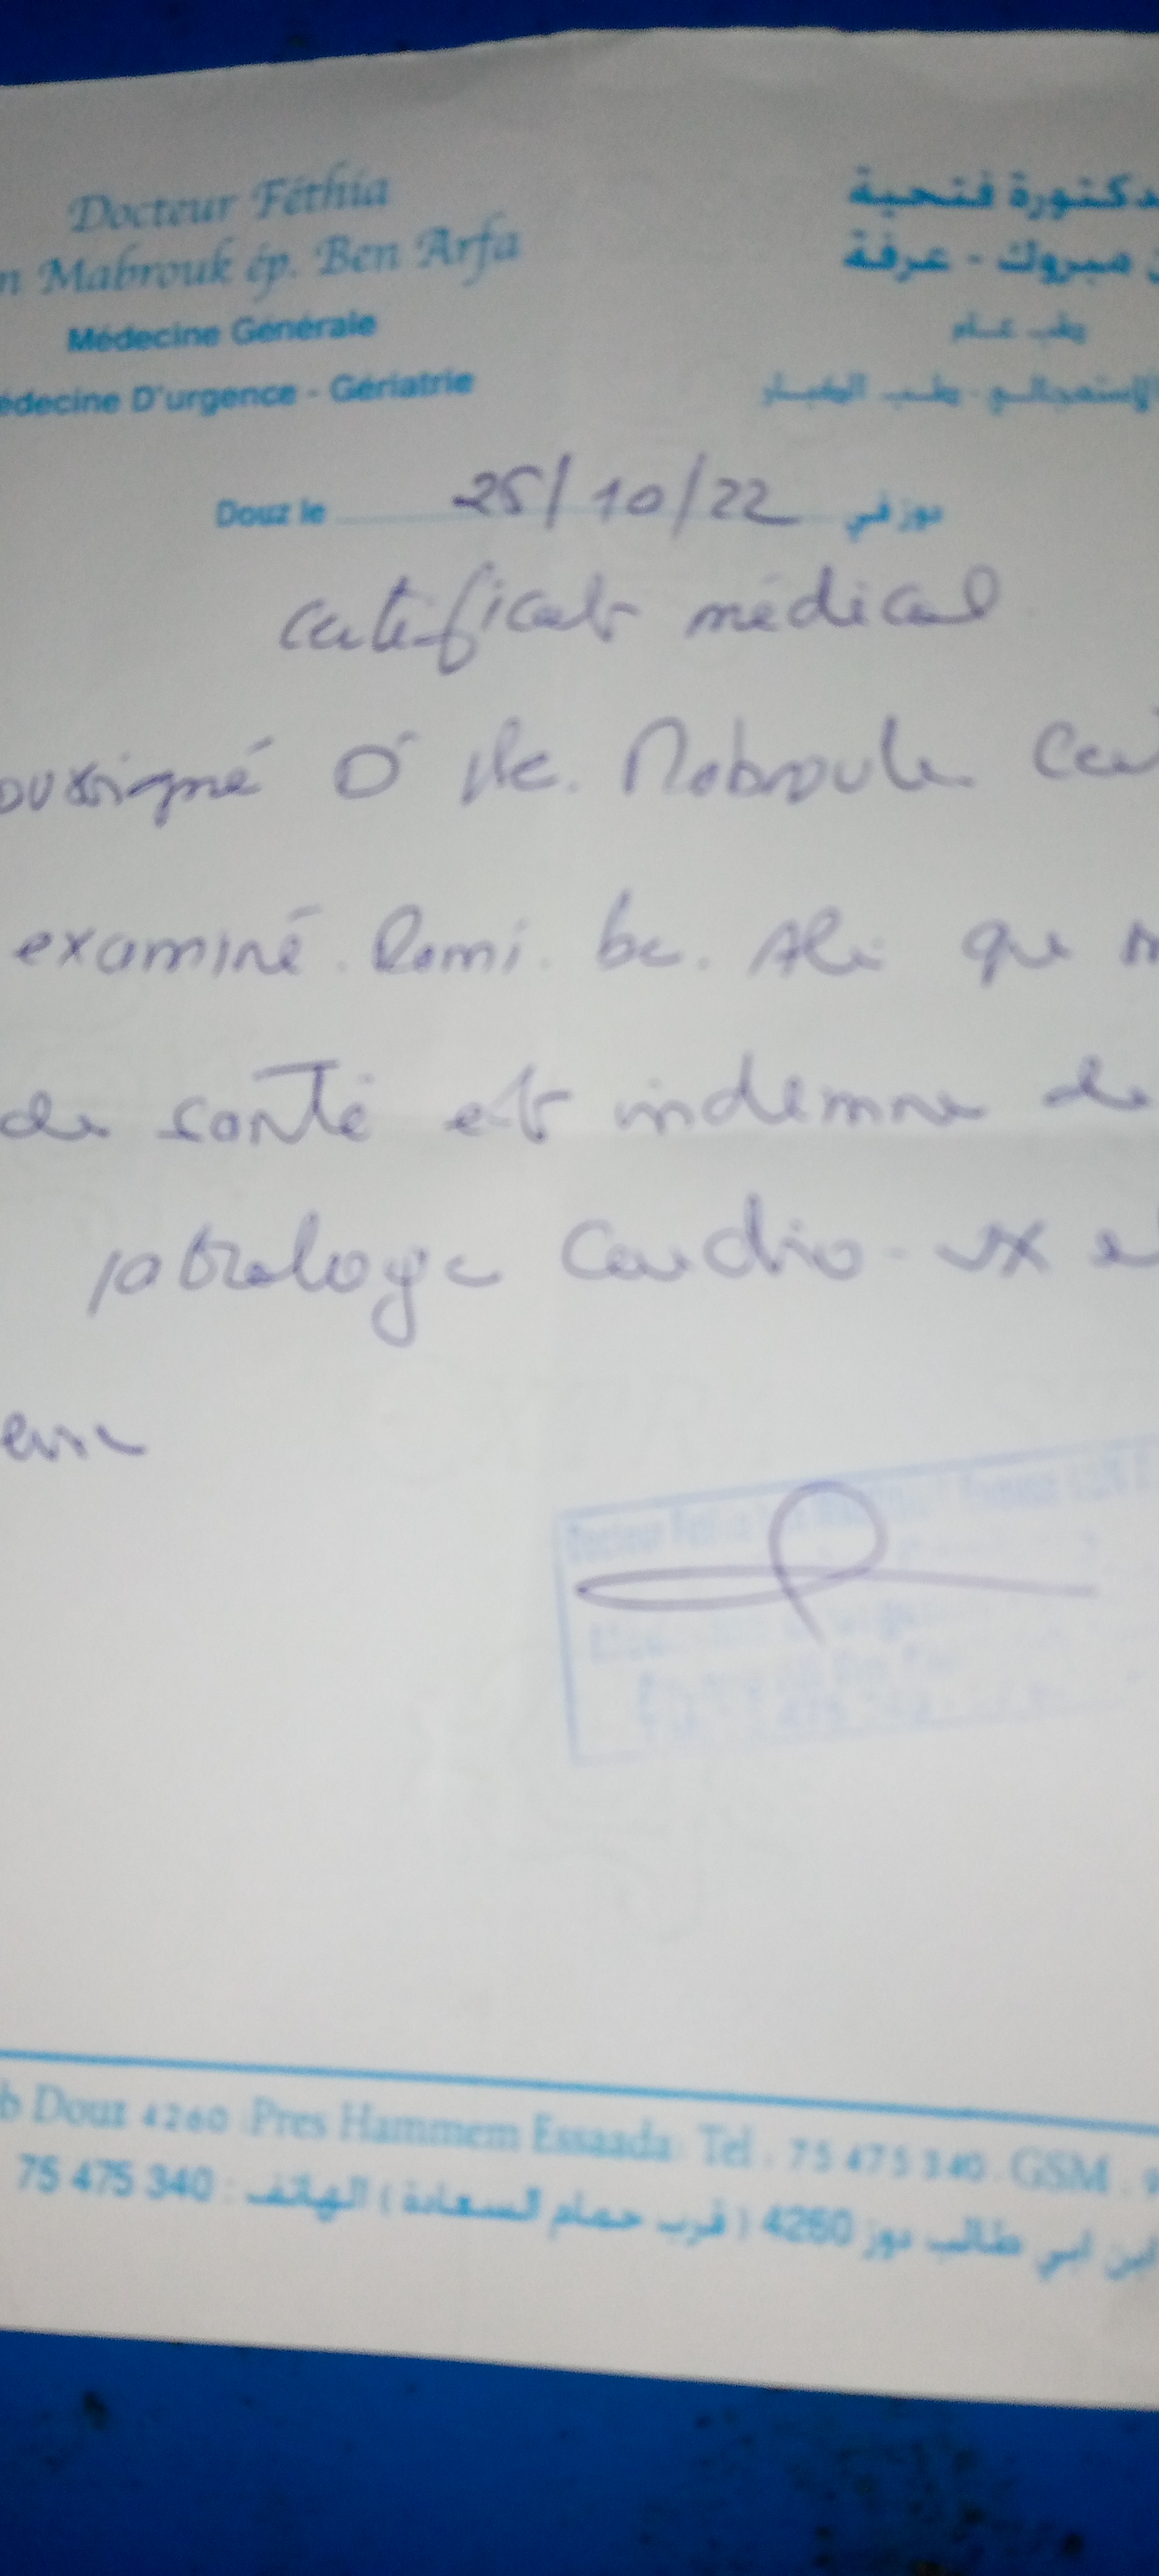 Docteur Féthia
الدكتورة فتحية
n Mabrouk ép. Ben Arfa
ن مبروك - عرفة
Médecine Générale
طب عام
édecine D'urgence - Gériatrie
الإستعجالي - طب الكبار
Douz le 25/10/22 دوز في
certificat médical
oussigné Dr Be. Mabrouk Cer
examiné Rami. be. Ali que
de santé est indemne de
pathologie cardio-vx e
Docteur
b Douz 4260 Pres Hammem Essaada Tel . 75 475 340 . GSM . 9
ابن ابي طالب دوز 4260 ( قرب حمام السعادة ) الهاتف : 75 475 340